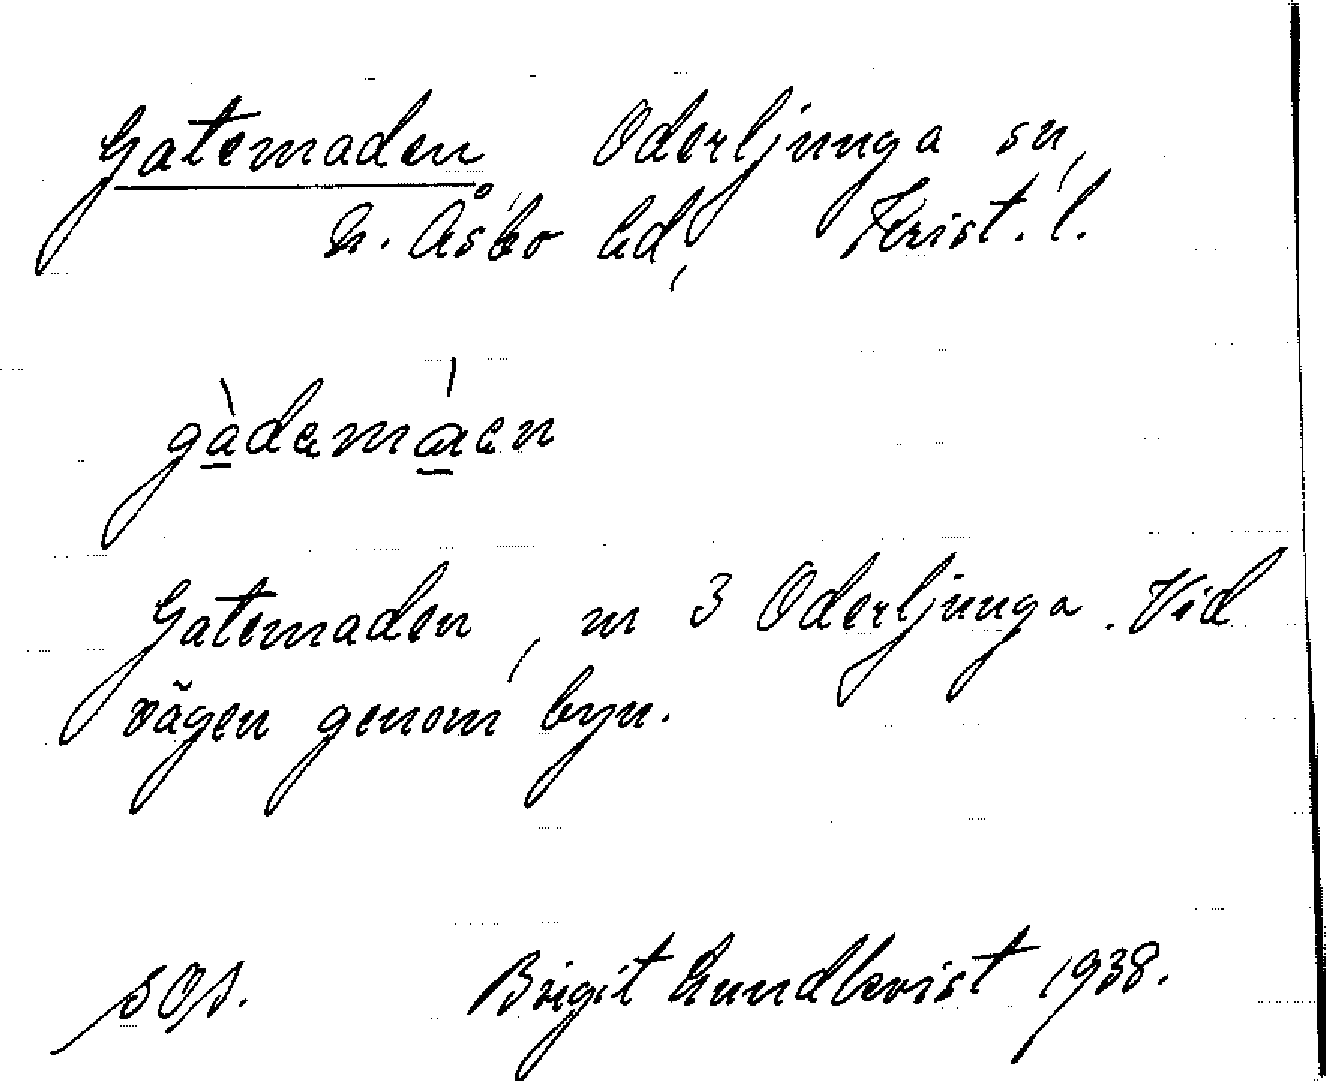 Gatemaden Oderljunga sn,
N. Åsbo hd, Krist. l.
gàdamáen
Gatemaden, m 3 Oderljunga. Vid
vägen genom byn.
SOA. Birgit Lundkvist 1938.